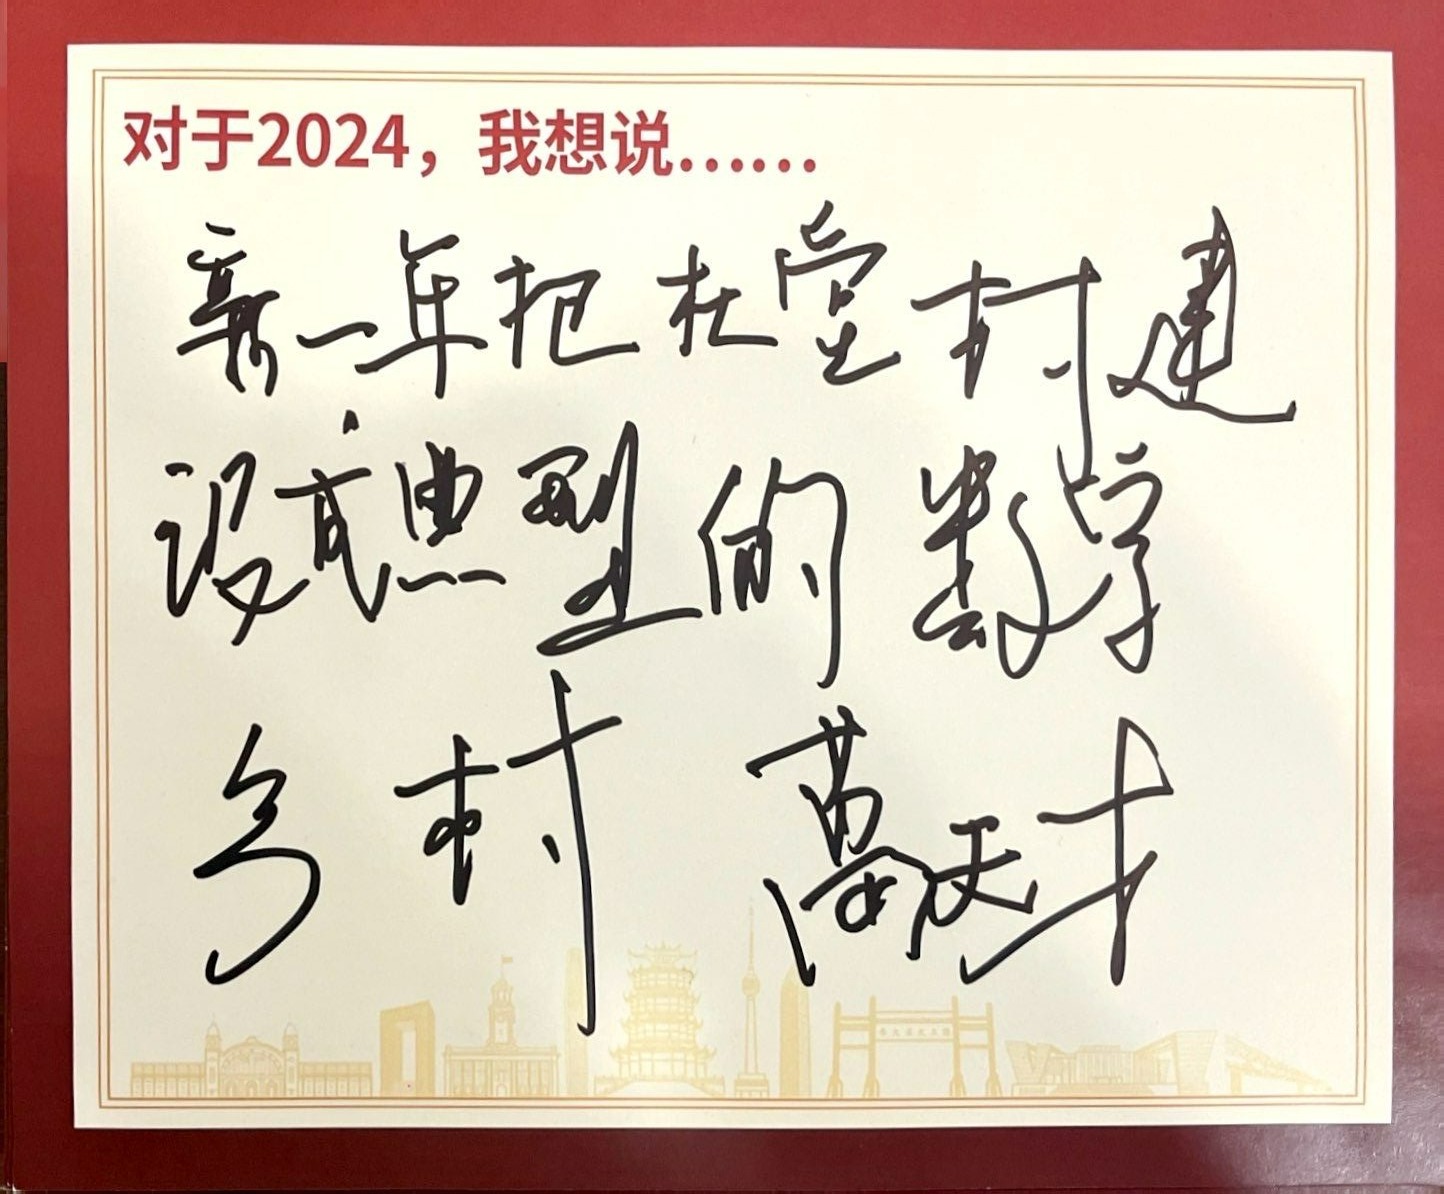 对于2024，我想说……
新一年把杜堂村建
设成典型的数字
乡村 葛天才